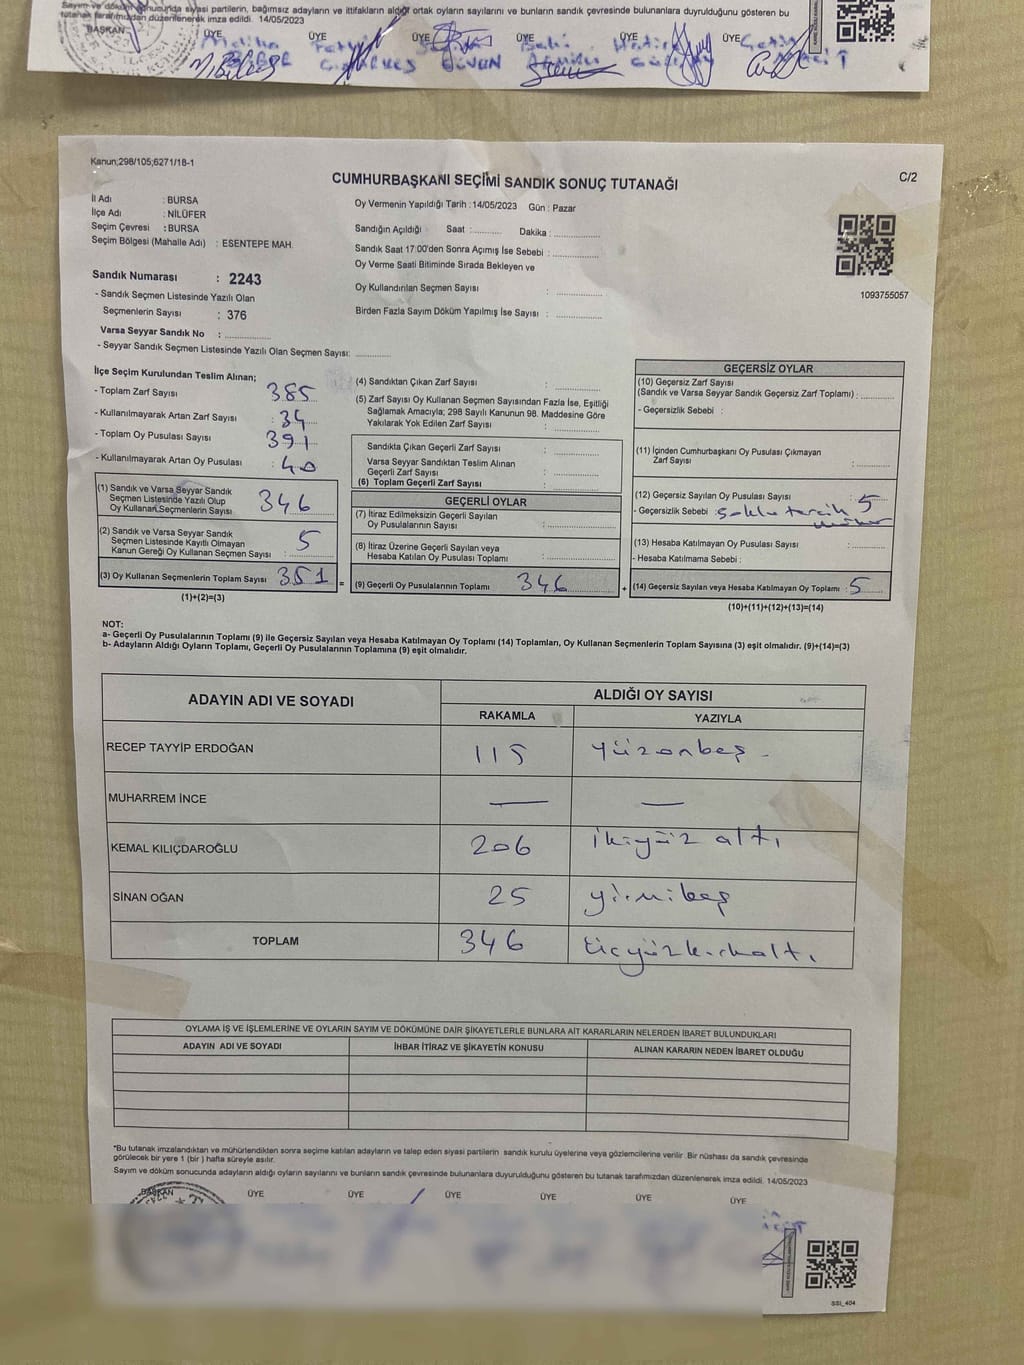 Sayım ve döküm sonucunda siyasi partilerin, bağımsız adayların ve ittifakların aldığı ortak oyların sayılarını ve bunların sandık çevresinde bulunanlara duyrulduğunu gösteren bu
tutanak tarafımızdan düzenlenerek imza edildi. 14/05/2023
BAŞKAN ÜYE ÜYE ÜYE ÜYE ÜYE ÜYE
Kanun;298/105;6271/18-1
C/2
CUMHURBAŞKANI SEÇİMİ SANDIK SONUÇ TUTANAĞI
İl Adı : BURSA
İlçe Adı : NİLÜFER
Seçim Çevresi : BURSA
Seçim Bölgesi (Mahalle Adı) : ESENTEPE MAH.
Oy Vermenin Yapıldığı Tarih : 14/05/2023 Gün : Pazar
Sandığın Açıldığı Saat :.......... Dakika : ..........
Sandık Saat 17:00'den Sonra Açımış İse Sebebi : ..........
Oy Verme Saati Bitiminde Sırada Bekleyen ve
Oy Kullandırılan Seçmen Sayısı : ..........
Birden Fazla Sayım Döküm Yapılmış İse Sayısı : ..........
1093755057
Sandık Numarası : 2243
- Sandık Seçmen Listesinde Yazılı Olan
Seçmenlerin Sayısı : 376
Varsa Seyyar Sandık No : ..........
- Seyyar Sandık Seçmen Listesinde Yazılı Olan Seçmen Sayısı: ..........
İlçe Seçim Kurulundan Teslim Alınan;
- Toplam Zarf Sayısı : 385
- Kullanılmayarak Artan Zarf Sayısı : 34
- Toplam Oy Pusulası Sayısı : 391
- Kullanılmayarak Artan Oy Pusulası : 40
(1) Sandık ve Varsa Seyyar Sandık
Seçmen Listesinde Yazılı Olup
Oy Kullanan Seçmenlerin Sayısı 346
(2) Sandık ve Varsa Seyyar Sandık
Seçmen Listesinde Kayıtlı Olmayan
Kanun Gereği Oy Kullanan Seçmen Sayısı : 5
(3) Oy Kullanan Seçmenlerin Toplam Sayısı 351
(1)+(2)=(3)
(4) Sandıktan Çıkan Zarf Sayısı : ..........
(5) Zarf Sayısı Oy Kullanan Seçmen Sayısından Fazla İse, Eşitliği
Sağlamak Amacıyla; 298 Sayılı Kanunun 98. Maddesine Göre
Yakılarak Yok Edilen Zarf Sayısı : ..........
Sandıkta Çıkan Geçerli Zarf Sayısı : ..........
Varsa Seyyar Sandıktan Teslim Alınan
Geçerli Zarf Sayısı : ..........
(6) Toplam Geçerli Zarf Sayısı : ..........
GEÇERLİ OYLAR
(7) İtiraz Edilmeksizin Geçerli Sayılan
Oy Pusulalarının Sayısı : ..........
(8) İtiraz Üzerine Geçerli Sayılan veya
Hesaba Katılan Oy Pusulası Toplamı : ..........
= (9) Geçerli Oy Pusulalarının Toplamı 346
GEÇERSİZ OYLAR
(10) Geçersiz Zarf Sayısı
(Sandık ve Varsa Seyyar Sandık Geçersiz Zarf Toplamı) : ..........
- Geçersizlik Sebebi :
(11) İçinden Cumhurbaşkanı Oy Pusulası Çıkmayan
Zarf Sayısı : ..........
(12) Geçersiz Sayılan Oy Pusulası Sayısı : 5
- Geçersizlik Sebebi : tercih
(13) Hesaba Katılmayan Oy Pusulası Sayısı : ..........
- Hesaba Katılmama Sebebi :
+ (14) Geçersiz Sayılan veya Hesaba Katılmayan Oy Toplamı : 5
(10)+(11)+(12)+(13)=(14)
NOT:
a- Geçerli Oy Pusulalarının Toplamı (9) ile Geçersiz Sayılan veya Hesaba Katılmayan Oy Toplamı (14) Toplamları, Oy Kullanan Seçmenlerin Toplam Sayısına (3) eşit olmalıdır. (9)+(14)=(3)
b- Adayların Aldığı Oyların Toplamı, Geçerli Oy Pusulalarının Toplamına (9) eşit olmalıdır.
ADAYIN ADI VE SOYADI ALDIĞI OY SAYISI
RAKAMLA YAZIYLA
RECEP TAYYİP ERDOĞAN 115 yüzonbeş
MUHARREM İNCE — —
KEMAL KILIÇDAROĞLU 206 ikiyüz altı
SİNAN OĞAN 25 yirmibeş
TOPLAM 346 üçyüzkırkaltı
OYLAMA İŞ VE İŞLEMLERİNE VE OYLARIN SAYIM VE DÖKÜMÜNE DAİR ŞİKAYETLERLE BUNLARA AİT KARARLARIN NELERDEN İBARET BULUNDUKLARI
ADAYIN ADI VE SOYADI İHBAR İTİRAZ VE ŞİKAYETİN KONUSU ALINAN KARARIN NEDEN İBARET OLDUĞU
*Bu tutanak imzalandıktan ve mühürlendikten sonra seçime katılan adayların ve talep eden siyasi partilerin sandık kurulu üyelerine veya gözlemcilerine verilir. Bir nüshası da sandık çevresinde
görülecek bir yere 1 (bir ) hafta süreyle asılır.
Sayım ve döküm sonucunda adayların aldığı oyların sayılarını ve bunların sandık çevresinde bulunanlara duyurulduğunu gösteren bu tutanak tarafımızdan düzenlenerek imza edildi. 14/05/2023
BAŞKAN ÜYE ÜYE ÜYE ÜYE ÜYE ÜYE
SSI_404